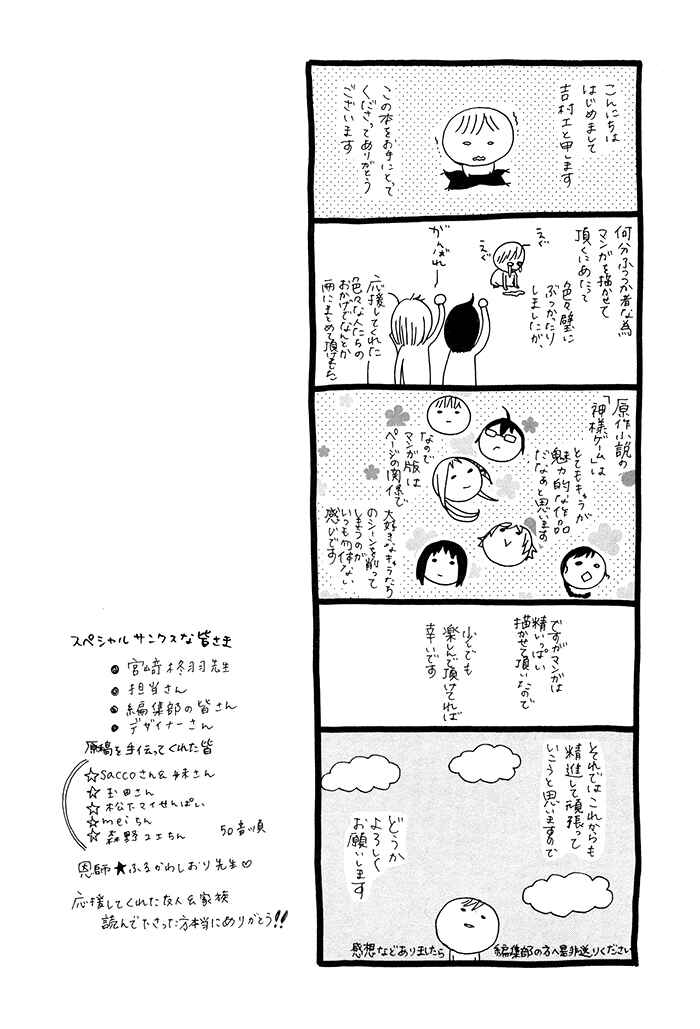 こんにちは
はじめまして
吉村エと申します
この本をお手にとって
くださってありがとう
ございます
何分ふつつか者な為
マンガを描かせて
頂くにあたって
色々壁に
ぶつかったり
しましたが、
えぐ
えぐ
がんばれー
応援してくれた
色々な人たちの
おかげでなんとか
原作小説の
「神様ゲーム」は
とてもキャラが
魅力的な作品
だなぁと思います
なので
マンガ版は
ページの関係で
大好きなキャラたち
のシーンを削って
しまうのが
いつも勿体ない
感じです
ですがマンガは
精いっぱい
描かせて頂いたので
少しでも
楽しんで頂けてれば
幸いです
それではこれからも
精進して頑張って
いこうと思いますので
どうか
よろしく
お願いします
感想などありましたら 編集部の方へ是非送りください
スペシャルサンクスな皆さま
● 宮﨑柊羽先生
● 担当さん
● 編集部の皆さん
● デザイナーさん
原稿を手伝ってくれた皆
☆saccoさん&妹さん
☆玉田さん
☆松下マイせんぱい
☆meiちん
☆森野ユエちん
50音順
恩師★ふるかわしおり先生♡
応援してくれた友人&家族
読んで下さった方本当にありがとう!!